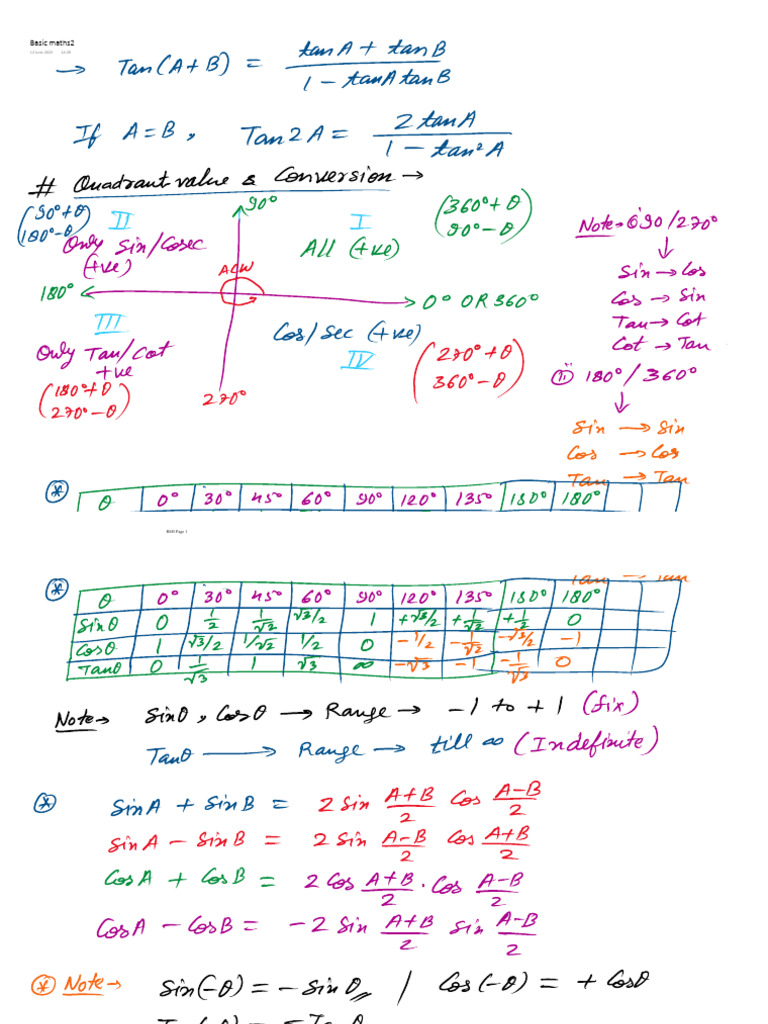 Basic maths2
→ Tan(A+B) = (tanA + tanB)/(1 - tanA tanB)
If A=B, Tan2A = 2tanA/(1 - tan²A)
# Quadrant value & Conversion →
(90°+θ
180°-θ)
II
Only Sin/Cosec
(+ve)
90°
I
All (+ve)
(360°+θ
90°-θ)
ACW
180°
0° OR 360°
III
Only Tan/Cot
+ve
(180°+θ
270°-θ)
270°
Cos/Sec (+ve)
IV
(270°+θ
360°-θ)
Note→ 90/270°
↓
Sin → Cos
Cos → Sin
Tan → Cot
Cot → Tan
ii 180°/360°
↓
Sin → Sin
Cos → Cos
Tan → Tan
* θ 0° 30° 45° 60° 90° 120° 135° 150° 180°
Page 1
Tan → Tan
* θ 0° 30° 45° 60° 90° 120° 135° 150° 180°
Sinθ 0 1/2 1/√2 √3/2 1 +√3/2 +1/√2 +1/2 0
Cosθ 1 √3/2 1/√2 1/2 0 -1/2 -1/√2 -√3/2 -1
Tanθ 0 1/√3 1 √3 ∞ -√3 -1 -1/√3 0
Note→ Sinθ, Cosθ → Range → -1 to +1 (fix)
Tanθ → Range → till ∞ (Indefinite)
* SinA + SinB = 2 Sin (A+B)/2 Cos (A-B)/2
SinA - SinB = 2 Sin (A-B)/2 Cos (A+B)/2
CosA + CosB = 2 Cos (A+B)/2 . Cos (A-B)/2
CosA - CosB = -2 Sin (A+B)/2 Sin (A-B)/2
* Note→ Sin(-θ) = -Sinθ,, / Cos(-θ) = +Cosθ